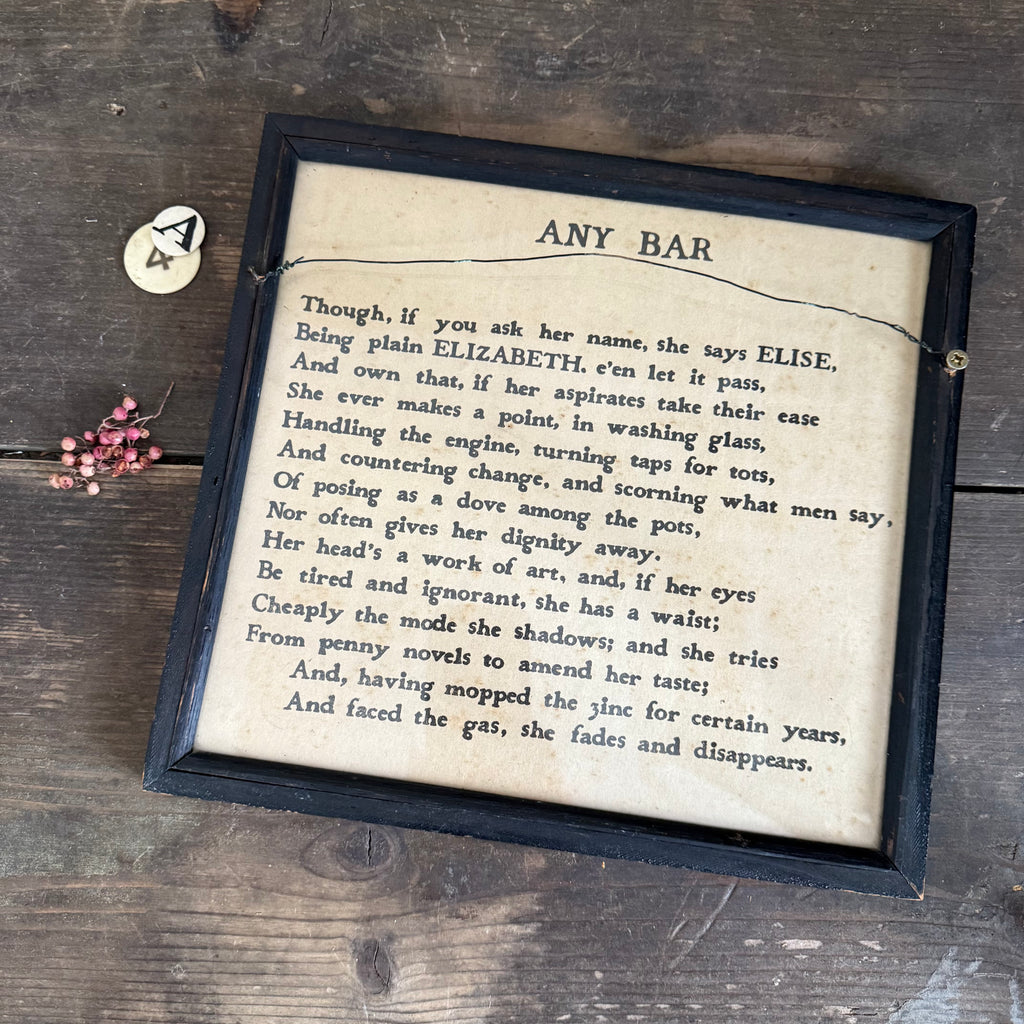 A
4
ANY BAR
Though, if you ask her name, she says ELISE,
Being plain ELIZABETH, e'en let it pass,
And own that, if her aspirates take their ease
She ever makes a point, in washing glass,
Handling the engine, turning taps for tots,
And countering change, and scorning what men say,
Of posing as a dove among the pots,
Nor often gives her dignity away.
Her head's a work of art, and, if her eyes
Be tired and ignorant, she has a waist;
Cheaply the mode she shadows; and she tries
From penny novels to amend her taste;
And, having mopped the zinc for certain years,
And faced the gas, she fades and disappears.